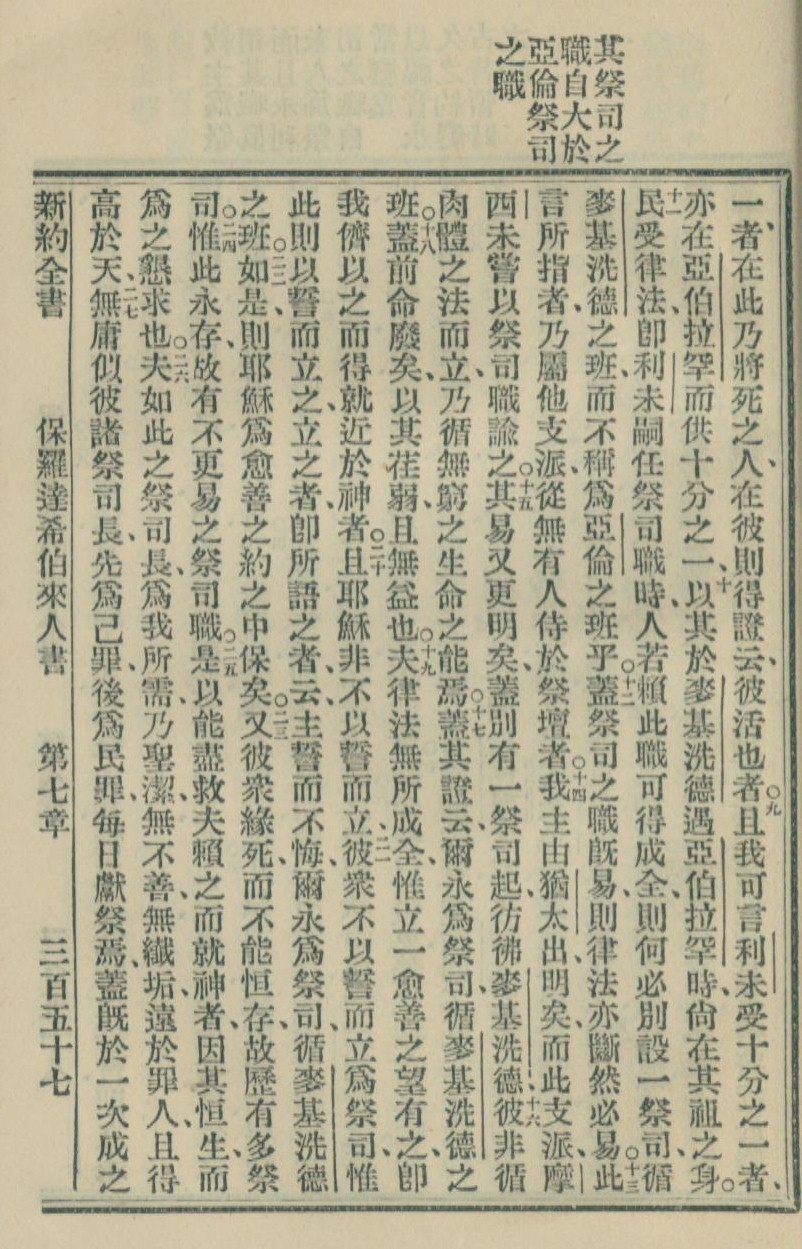 其祭司之
職自大於
亞倫祭司
之職
一者、在此乃將死之人、在彼則得證云、彼活也者、○九且我可言利未受十分之一者、
亦在亞伯拉罕而供十分之一、十以其於麥基洗德遇亞伯拉罕時、尙在其祖之身○
十一民受律法、卽利未嗣任祭司職時、人若賴此職可得成全、則何必別設一祭司、循
麥基洗德之班、而不稱爲亞倫之班乎、○十二蓋祭司之職旣易、則律法亦斷然必易、○十三此
言所指者、乃屬他支派、從無有人侍於祭壇者、○十四我主由猶太出、明矣、而此支派、摩
西未嘗以祭司職諭之、○十五其易又更明矣、蓋別有一祭司起、彷彿麥基洗德、十六彼非循
肉體之法而立、乃循無窮之生命之能焉、○十七蓋其證云、爾永爲祭司、循麥基洗德之
班、○十八蓋前命廢矣、以其荏弱、且無益也、○十九夫律法無所成全、惟立一愈善之望有之、卽
我儕以之而得就近於神者、○二十且耶穌非不以誓而立、二一彼衆不以誓而立爲祭司、惟
此則以誓而立之、立之者、卽所語之者、云、主誓而不悔、爾永爲祭司、循麥基洗德
之班、○二二如是、則耶穌爲愈善之約之中保矣、○二三又彼衆緣死、而不能恒存、故歷有多祭
司、○二四惟此永存、故有不更易之祭司職、○二五是以能盡救夫賴之而就神者、因其恒生、而
爲之懇求也、○二六夫如此之祭司長、爲我所需、乃聖潔、無不善、無纖垢、遠於罪人、且得
高於天、二七無庸似彼諸祭司長、先爲己罪、後爲民罪、每日獻祭焉、蓋旣於一次成之
新約全書　保羅達希伯來人書　第七章　三百五十七